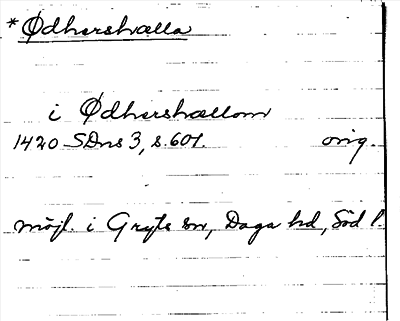 * Ødhershælla
i Ødhershællom
1420 SDns 3, s. 601. orig.
möjl. i Gryts sn, Daga hd, Söd l.